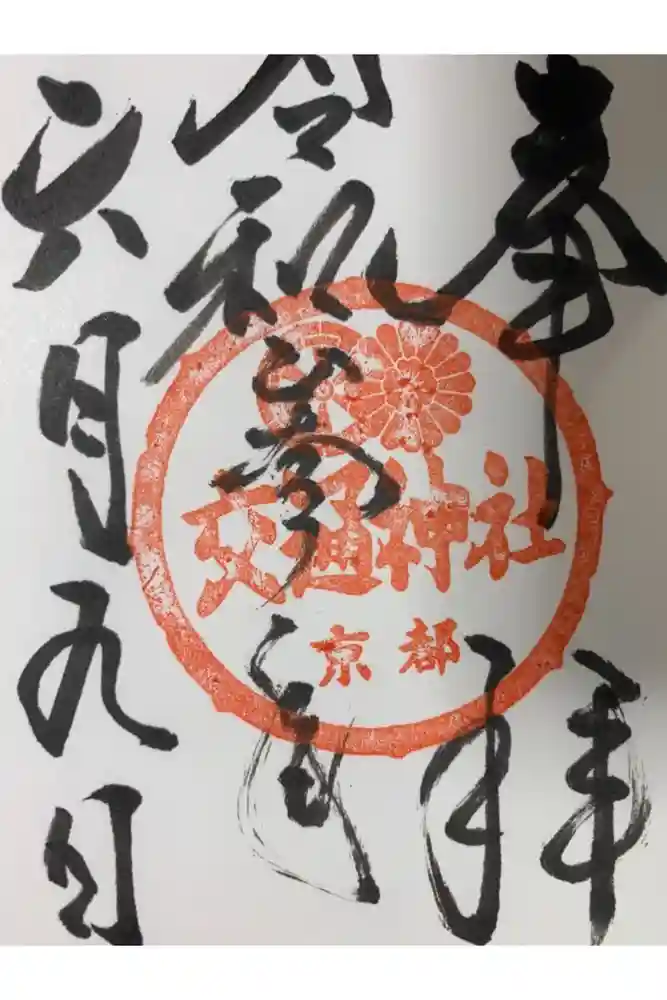 奉拝
令和
六月九日
交通神社
京都